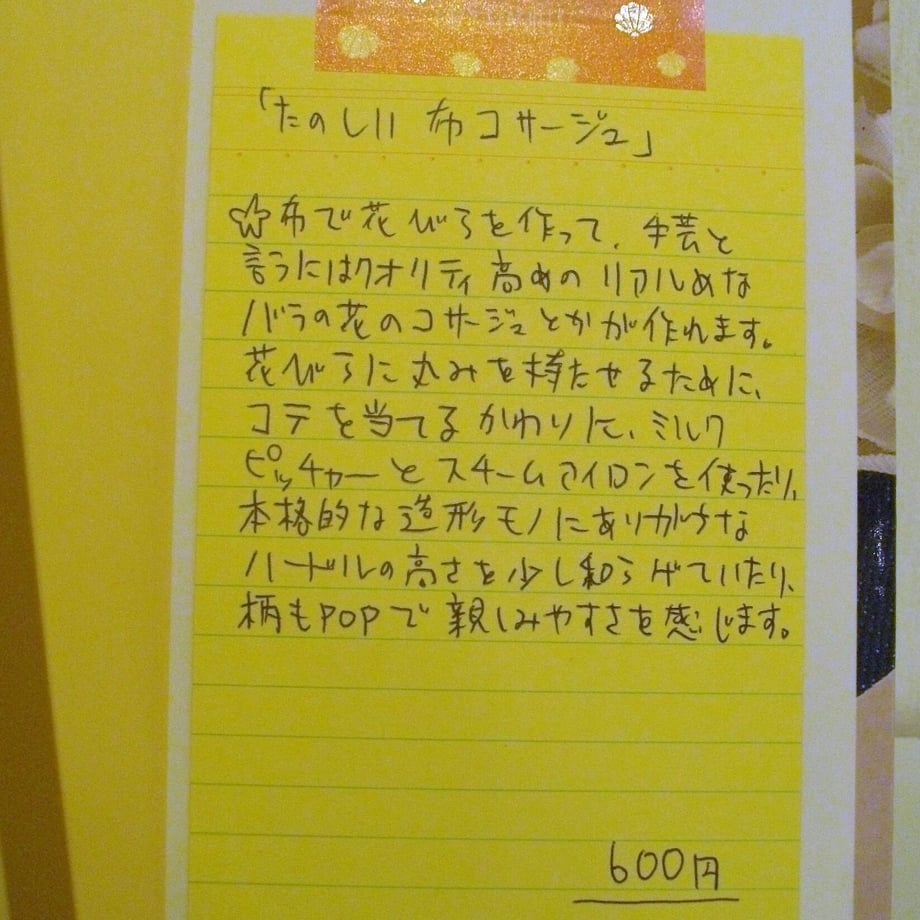 「たのしい 布コサージュ」
☆布で花びらを作って、手芸と
言うにはクオリティ高めのリアルめな
バラの花のコサージュとかが作れます。
花びらに丸みを持たせるために、
コテを当てるかわりに、ミルク
ピッチャーとスチームアイロンを使ったり、
本格的な造形モノにありがちな
ハードルの高さを少し和らげていたり、
柄もPOPで親しみやすさを感じます。
600円